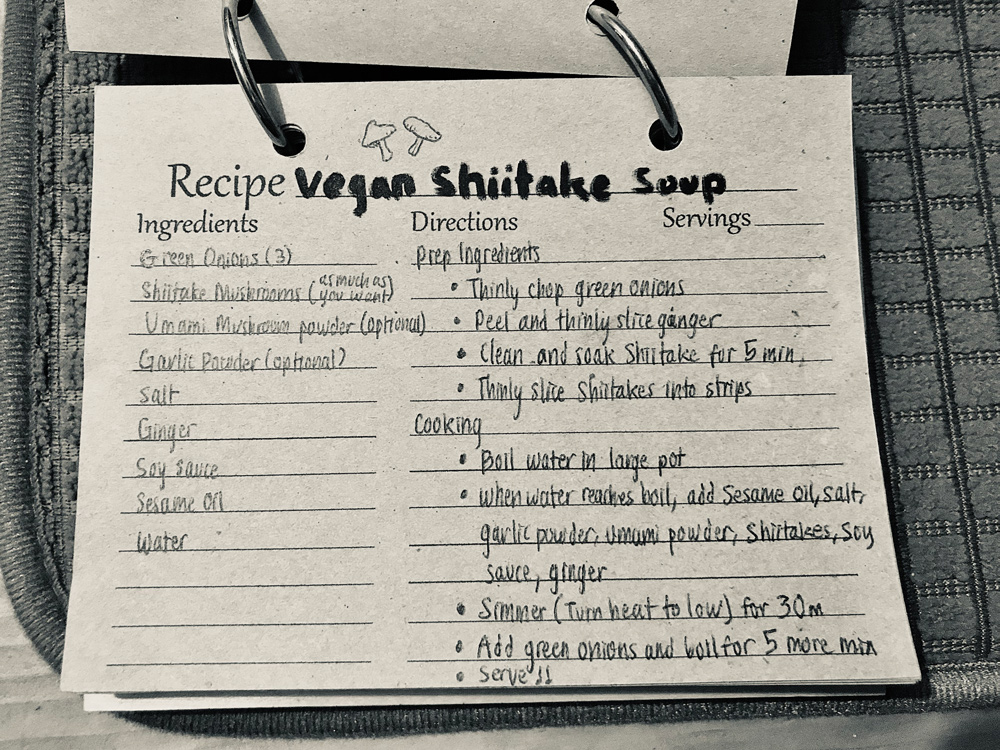 Recipe Vegan Shiitake Soup
Ingredients
Green Onions (3)
Shiitake Mushrooms (as much as you want)
Umami Mushroom powder (optional)
Garlic Powder (optional)
Salt
Ginger
Soy Sauce
Sesame Oil
Water
Directions
Servings
Prep Ingredients
• Thinly chop green onions
• Peel and thinly slice ginger
• Clean and soak Shiitake for 5 min.
• Thinly slice Shiitakes into strips
Cooking
• Boil water in large pot
• When water reaches boil, add Sesame oil, salt,
garlic powder, umami powder, Shiitakes, Soy
sauce, ginger
• Simmer (Turn heat to low) for 30m
• Add green onions and boil for 5 more min
• Serve!!